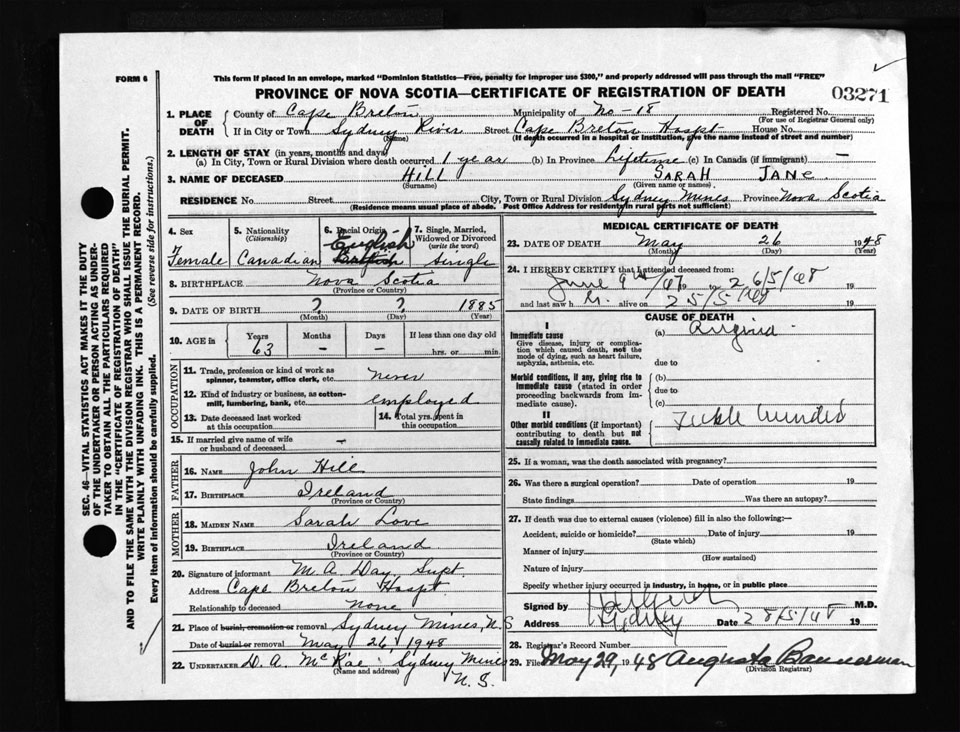 FORM 6
This form if placed in an envelope, marked "Dominion Statistics—Free, penalty for improper use $300," and properly addressed will pass through the mail "FREE"
PROVINCE OF NOVA SCOTIA—CERTIFICATE OF REGISTRATION OF DEATH
03271
1. PLACE OF DEATH
County of Cape Breton Municipality of No-18 Registered No.
(For use of Registrar General only)
If in City or Town Sydney River Street Cape Breton Hospt House No.
(Name) (If death occurred in a hospital or institution, give the name instead of street and number)
2. LENGTH OF STAY (in years, months and days)
(a) In City, Town or Rural Division where death occurred 1 year (b) In Province Lifetime (c) In Canada (if immigrant) —
3. NAME OF DECEASED HILL SARAH JANE
(Surname) (Given name or names)
RESIDENCE No. Street City, Town or Rural Division Sydney Mines Province Nova Scotia
(Residence means usual place of abode. Post Office Address for residents in rural parts not sufficient)
4. Sex
Female
5. Nationality
(Citizenship)
Canadian
6. Racial Origin
English
British
7. Single, Married, Widowed or Divorced
(write the word)
Single
8. BIRTHPLACE Nova Scotia
(Province or Country)
9. DATE OF BIRTH ? ? 1885
(Month) (Day) (Year)
10. AGE in
Years Months Days If less than one day old
63 — — hrs. or min.
OCCUPATION
11. Trade, profession or kind of work as spinner, teamster, office clerk, etc. never
12. Kind of industry or business, as cotton-mill, lumbering, bank, etc. employed
13. Date deceased last worked at this occupation
14. Total yrs. spent in this occupation
15. If married give name of wife or husband of deceased —
FATHER
16. NAME John Hill
17. BIRTHPLACE Ireland
(Province or Country)
MOTHER
18. MAIDEN NAME Sarah Love
19. BIRTHPLACE Ireland
(Province or Country)
20. Signature of informant M. A. Day, Supt.
Address Cape Breton Hospt
Relationship to deceased None
21. Place of burial, cremation or removal Sydney Mines, N.S
Date of burial or removal May 26, 1948
22. UNDERTAKER D. A. McRae, Sydney Mines
(Name and address)
N. S.
MEDICAL CERTIFICATE OF DEATH
23. DATE OF DEATH May 26 1948
(Month) (Day) (Year)
24. I HEREBY CERTIFY that I attended deceased from:
June 9th /47 to 26/5/48
and last saw h r. alive on 25/5/48
CAUSE OF DEATH
I
Immediate cause
Give disease, injury or complication which caused death, not the mode of dying, such as heart failure, asphyxia, asthenia, etc.
(a) Angina
due to
Morbid conditions, if any, giving rise to immediate cause (stated in order proceeding backwards from immediate cause).
(b)
due to
(c)
II
Other morbid conditions (if important) contributing to death but not causally related to immediate cause.
Feeble minded
25. If a woman, was the death associated with pregnancy?
26. Was there a surgical operation? Date of operation 19
State findings Was there an autopsy?
27. If death was due to external causes (violence) fill in also the following:—
Accident, suicide or homicide? Date of injury 19
(State which)
Manner of injury
(How sustained)
Nature of injury
Specify whether injury occurred in industry, in home, or in public place
Signed by M.D.
Address Sydney Date 28/5/48 19
28. Registrar's Record Number
29. Filed May 29, 1948 Augusta Bannerman
(Division Registrar)
SEC. 46—VITAL STATISTICS ACT MAKES IT THE DUTY
OF THE UNDERTAKER OR PERSON ACTING AS UNDERTAKER TO OBTAIN ALL THE PARTICULARS REQUIRED
IN THE "CERTIFICATE OF REGISTRATION OF DEATH"
AND TO FILE THE SAME WITH THE DIVISION REGISTRAR WHO SHALL ISSUE THE BURIAL PERMIT.
WRITE PLAINLY WITH UNFADING INK. THIS IS A PERMANENT RECORD.
Every item of information should be carefully supplied. (See reverse side for instructions.)